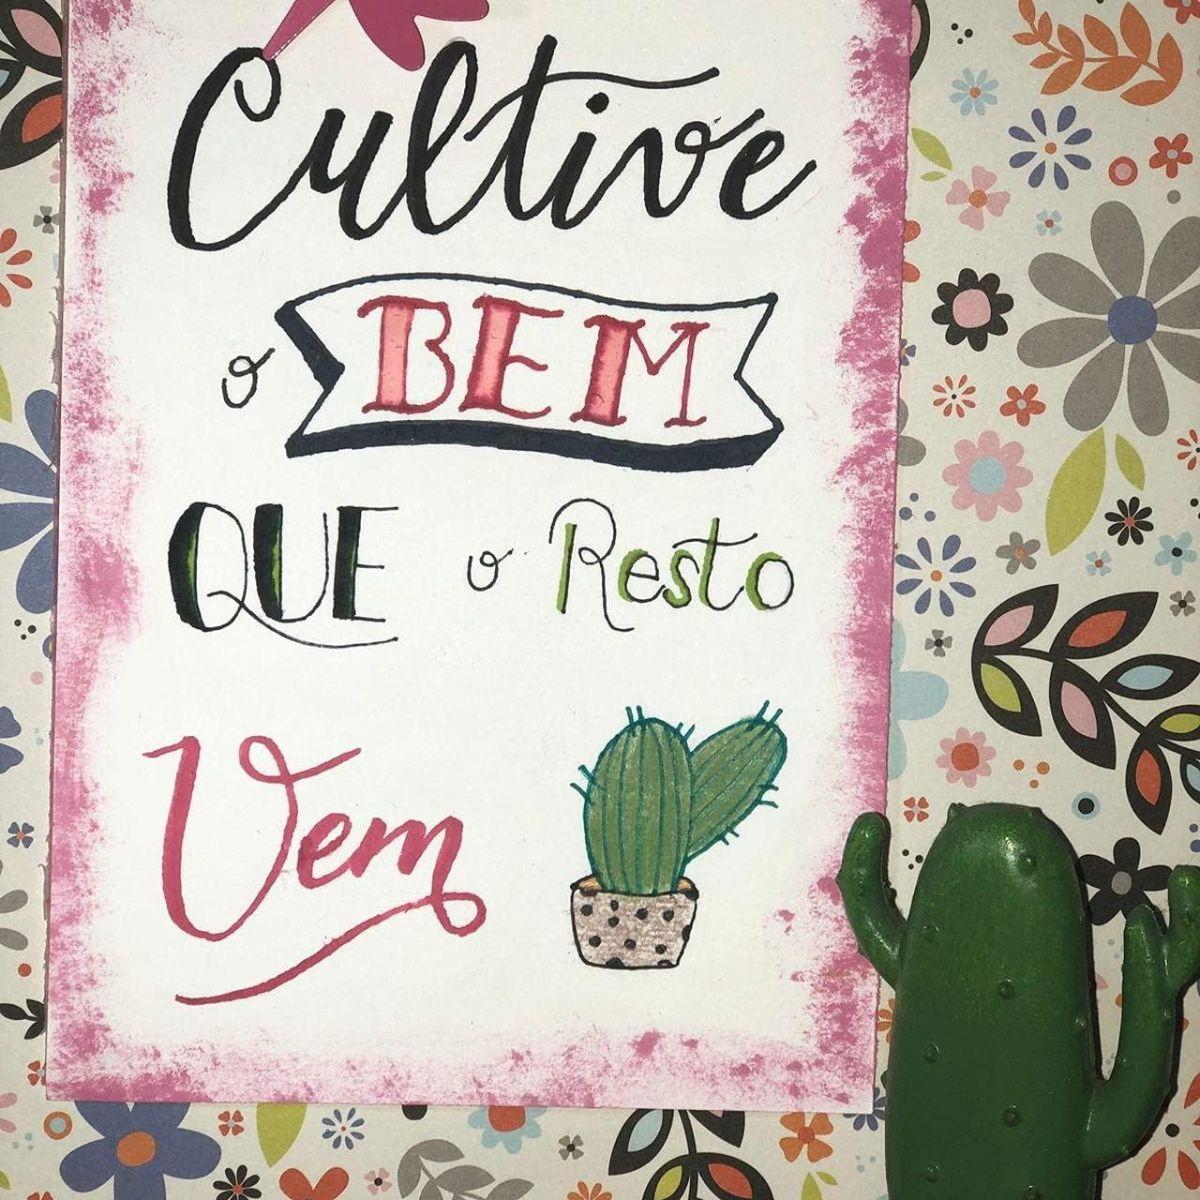 Cultive
o BEM
QUE o Resto
Vem